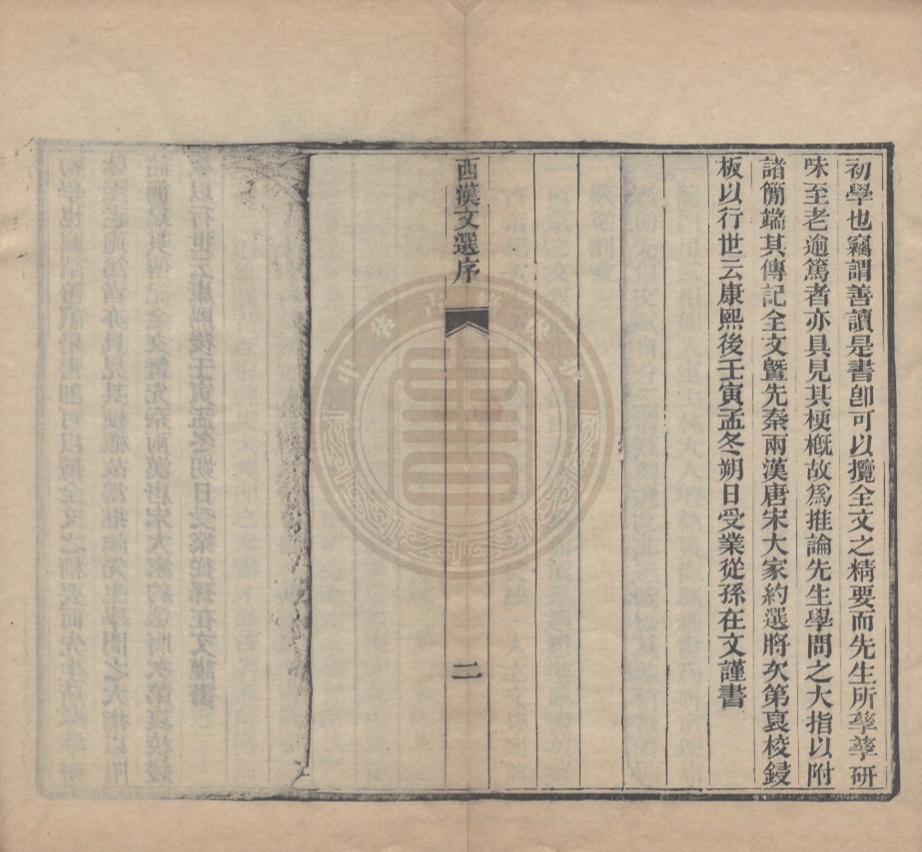 初學也竊謂善讀是書卽可以攬全文之精要而先生所孳孳研
味至老逾篤者亦具見其梗槪故爲推論先生學問之大指以附
諸簡端其傳記全文曁先秦兩漢唐宋大家約選將次第裒校鋟
板以行世云康熙後壬寅孟冬朔日受業從孫在文謹書
西漢文選序
二